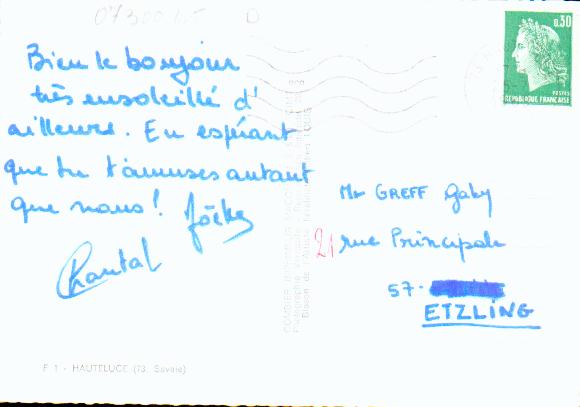 0730015
D
Bien le bonjour
très ensoleillé d'
ailleurs. En espérant
que tu t'amuses autant
que nous!
Chantal
F 1 - HAUTELUCE (73. Savoie)
COMBIER
0,30
POSTES
REPUBLIQUE FRANÇAISE
Mr GREFF Gaby
21 rue Principale
57.
ETZLING